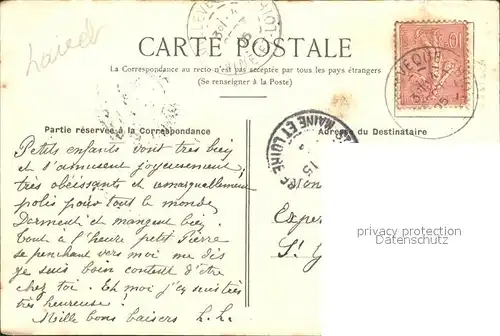 CARTE POSTALE
La Correspondance au recto n'est pas acceptée par tous les pays étrangers
(Se renseigner à la Poste)
Partie réservée à la Correspondance
Adresse du Destinataire
Petits enfants vont très bien
et s'amusent joyeusement,
très obéissants et remarquablement
polis pour tout le monde
Dorment et mangent bien.
Tout à l'heure petit Pierre
se penchant vers moi me dis
je suis bien content d'être
chez toi. Et moi j'en suis très
très heureuse!
Mille bons baisers L. L.
MAINE ET LOIRE
15
10
05
privacy protection
Datenschutz